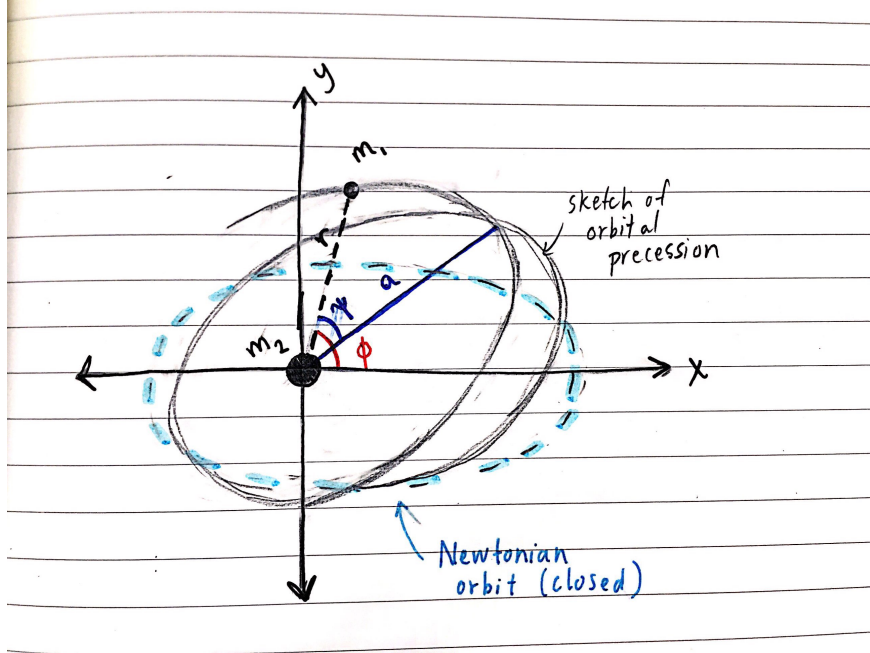 y
m₁
sketch of
orbital
precession
r
a
ψ
m₂
φ
x
Newtonian
orbit (closed)